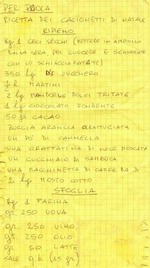 PER PAOLA
RICETTA DEI CAGIONETTI DI NATALE
RIPIENO
Kg 1 CECI SECCHI (METTERE IN AMMOLLO
UNA SERA, POI CUOCERE E SCHIACCIARE
CON LO SCHIACCIAPATATE)
350 DI ZUCCHERO
MARTINI
2 MANDORLE DOLCI TRITATE
1 CIOCCOLATO FONDENTE
50 gr CACAO
SCORZA ARANCIA GRATTUGIATA
UN PO' DI CANNELLA
UNA GRATTATINA DI NOCE MOSCATA
UN CUCCHIAIO DI SAMBUCA
UNA
MOSTO COTTO
SFOGLIA
Kg 1 FARINA
gr. 250 UOVA
gr. 250 VINO
gr. 250 OLIO
gr. 50 LATTE
SALE